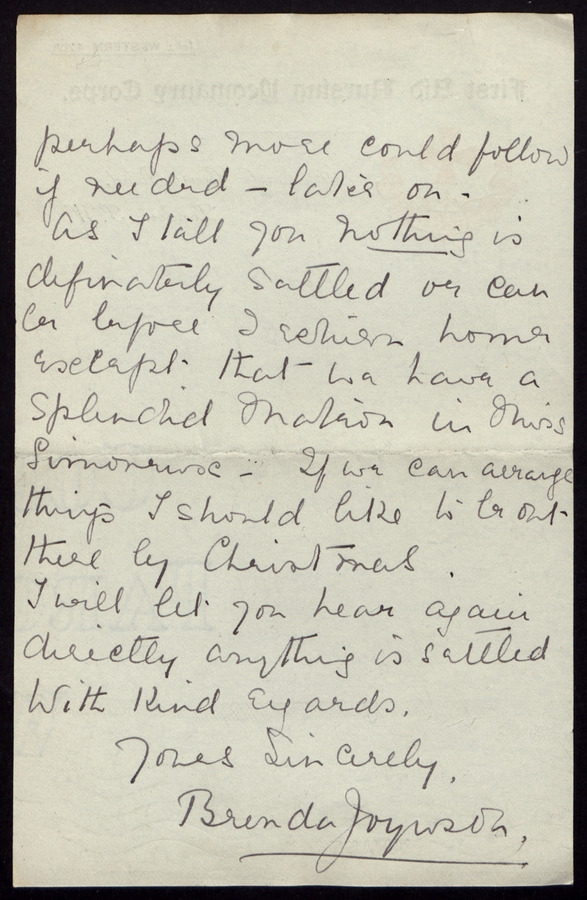 perhaps more could follow
if needed - later on -
As I tell you nothing is
definately settled or can
be before I return home
except that we have a
splendid Matron in Miss
- If we can arrange
things I should like to be out
there by Christmas.
I will let you hear again
directly anything is settled
With Kind egards.
Yours Sincerely,
Brenda Joynson,